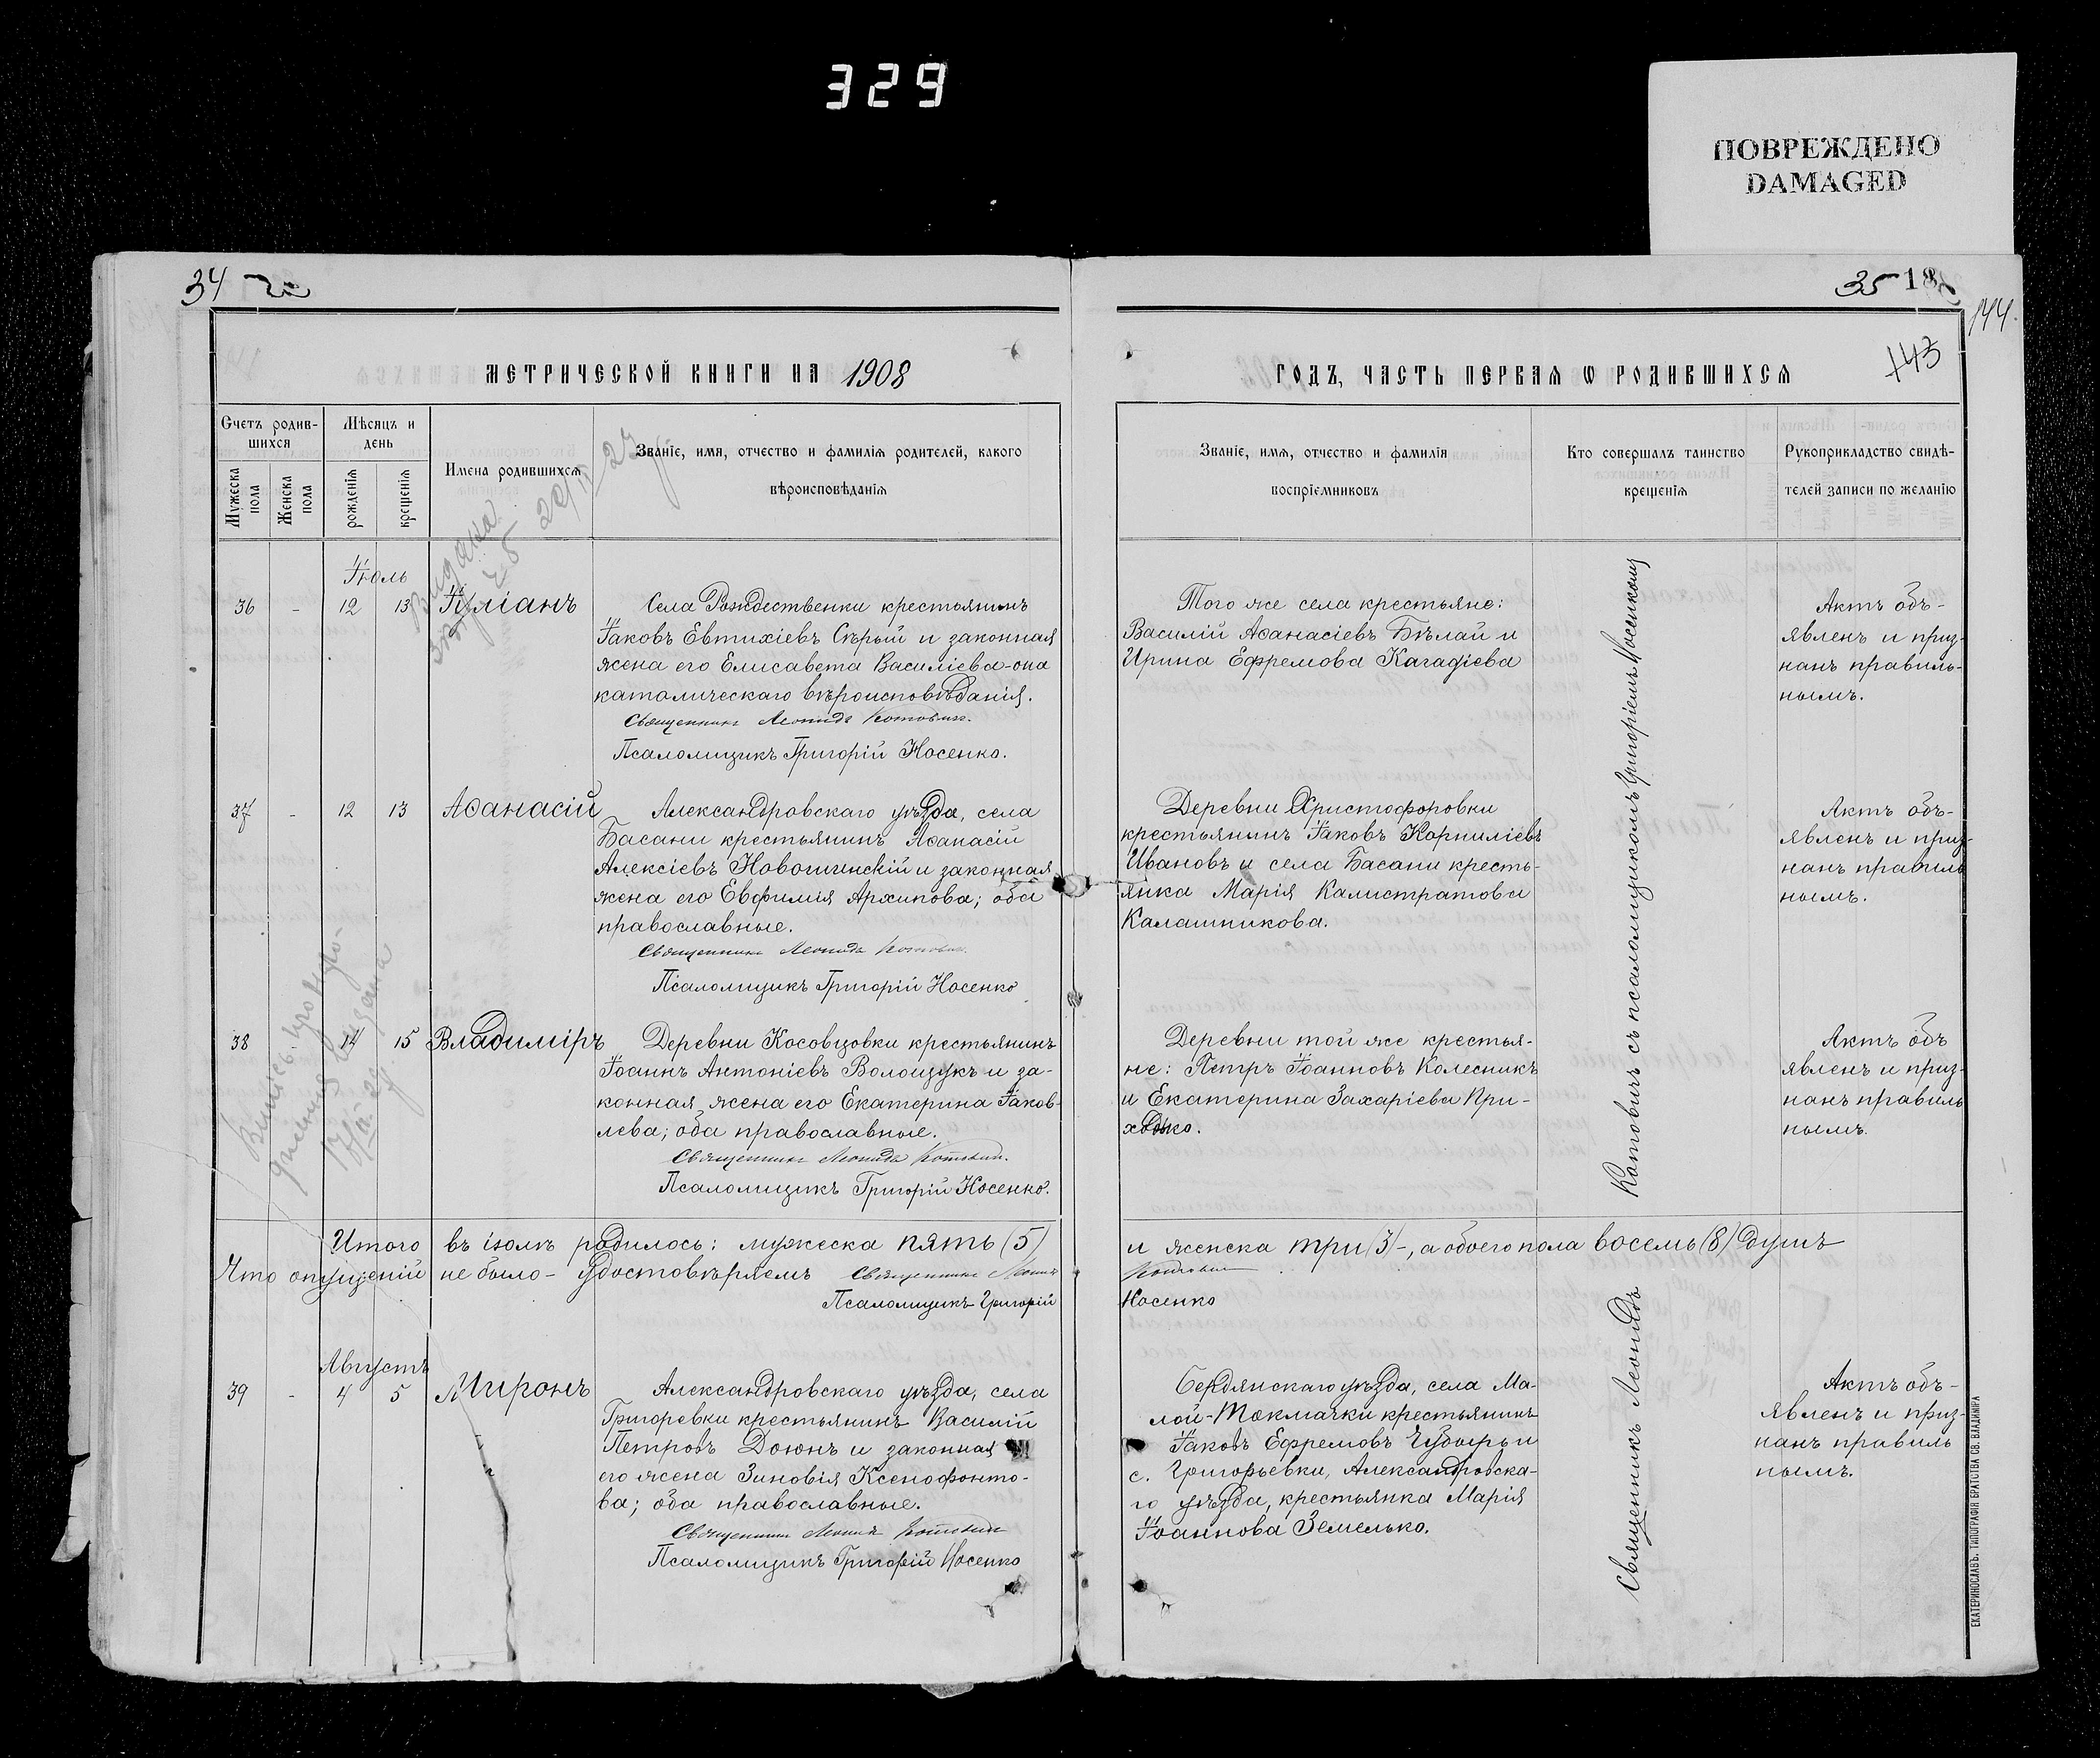 329
ПОВРЕЖДЕНО
DAMAGED
34
35 18
144.
143
МЕТРИЧЕСКОЙ КНИГИ НА 1908
ГОДЪ, ЧАСТЬ ПЕРВАЯ Ѡ РОДИВШИХСЯ
Счетъ родив-
шихся
Мужеска
пола
Женска
пола
Мѣсяцъ и
день
рожденія
крещенія
Имена родившихся
Званіе, имя, отчество и фамилія родителей, какого
вѣроисповѣданія
Званіе, имя, отчество и фамилія
воспріемниковъ
Кто совершалъ таинство
крещенія
Рукоприкладство свидѣ-
телей записи по желанію
Іюль
36 - 12 13 Іуліанъ
Села Рождественки крестьянинъ
Іаковъ Евтихіевъ Сѣрый и законная
жена его Елисавета Василіева-она
католическаго вѣроисповѣданія.
Священникъ Леонидъ Котовичъ.
Псаломщикъ Григорій Носенко.
Того же села крестьяне:
Василій Аѳанасіевъ Бѣлай и
Ирина Ефремова Кагадіева
Актъ объ-
явленъ и приз-
нанъ правиль-
нымъ.
37 - 12 13 Аѳанасій
Александровскаго уѣзда, села
Басани крестьянинъ Аѳанасій
Алексіевъ Новошинскій и законная
жена его Евфимія Архипова; оба
православные.
Священникъ Леонидъ Котович.
Псаломщикъ Григорій Носенко
Деревни Христофоровки
крестьянинъ Іаковъ Корниліевъ
Ивановъ и села Басани кресть-
янка Марія Калистратова
Калашникова.
Актъ объ-
явленъ и приз-
нанъ правиль
нымъ.
38 - 14 15 Владиміръ
Деревни Косовцовки крестьянинъ
Іоаннъ Антоніевъ Волощукъ и за-
конная жена его Екатерина Іаков-
лева; оба православные.
Священникъ Леонидъ Котович.
Псаломщикъ Григорій Носенко.
Деревни той же крестья-
не: Петръ Іоанновъ Колесникъ
и Екатерина Захаріева При-
ходько.
Актъ объ
явленъ и приз-
нанъ правиль
нымъ.
Котовичъ съ псаломщикомъ Григоріемъ Носенкомъ
Итого въ іюлѣ родилось: мужеска пять (5) и женска три (3)-, а обоего пола восемь (8) душъ
Что опущеній не было- удостовѣряемъ Священникъ Леонидъ Котович
Псаломщикъ Григорій Носенко
Августъ
39 - 4 5 Миронъ
Александровскаго уѣзда, села
Григоревки крестьянинъ Василій
Петровъ Доюнъ и законная
его жена Зиновія Ксенофонто-
ва; оба православные.
Священникъ Леонидъ Котович
Псаломщикъ Григорій Носенко
Бердянскаго уѣзда, села Ма-
лой-Токмачки крестьянинъ
Іаковъ Ефремовъ и
с. Григорьевки, Александровска-
го уѣзда, крестьянка Марія
Іоаннова Земелько.
Священникъ Леонидъ
Актъ объ-
явленъ и приз-
нанъ правиль
нымъ.
ЕКАТЕРИНОСЛАВЪ. ТИПОГРАФІЯ БРАТСТВА СВ. ВЛАДИМІРА